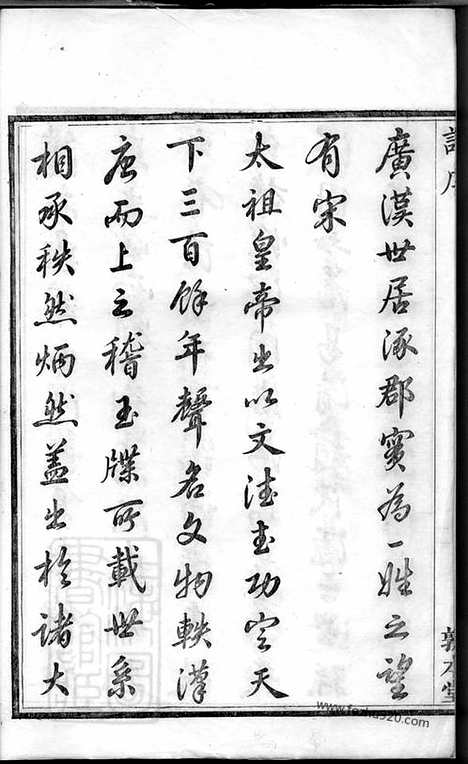 廣漢世居涿郡實為一姓之望
有宋
太祖皇帝出以文德武功定天
下三百餘年聲名文物軼漢
唐而上之稽玉牒所載世系
相承秩然炳然蓋出於諸大
敦本堂
www.fozhu920.com